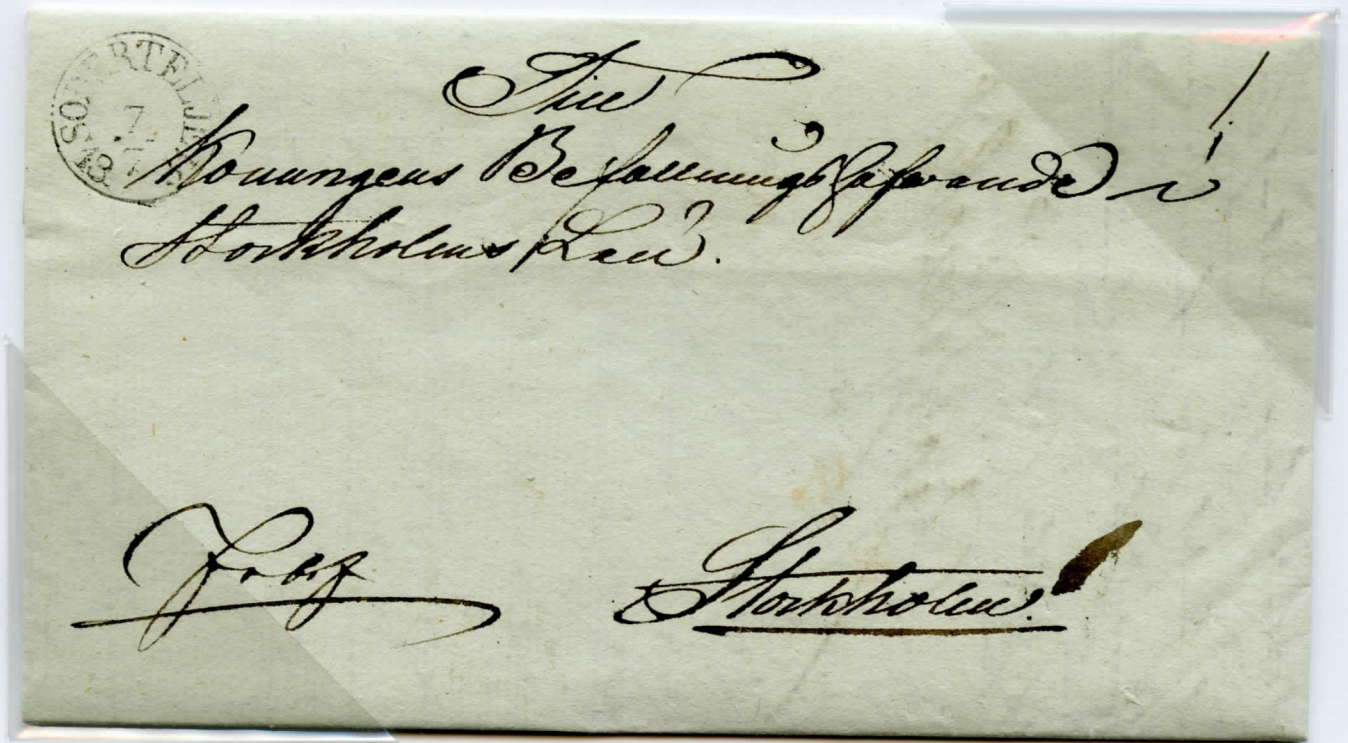 SÖDERTELJE
7
Till
Konungens Befallningshafvande i
Stockholms Län.
Frbrf
Stockholm.